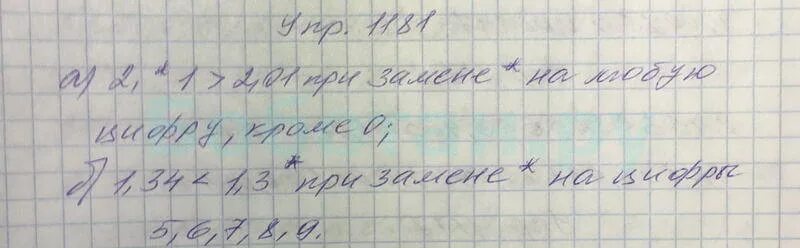 Упр. 1181
а) 2,*1 > 2,01 при замене * на любую
цифру, кроме 0;
б) 1,34 < 1,3* при замене * на цифры
5, 6, 7, 8, 9.